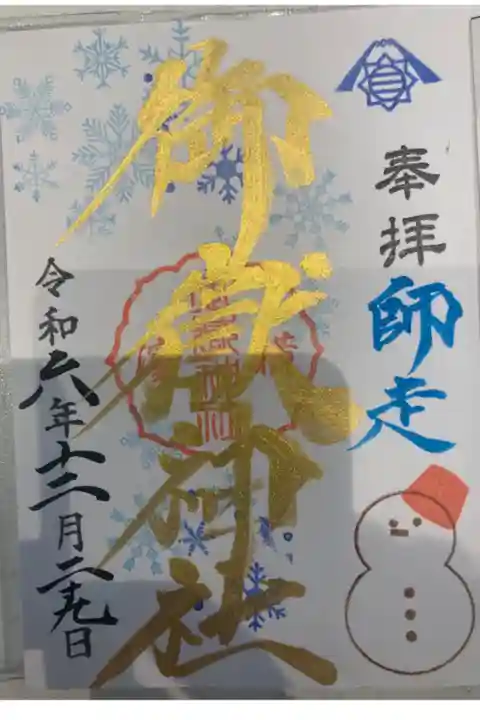 奉拝
師走
御嶽神社
令和六年十二月二十九日